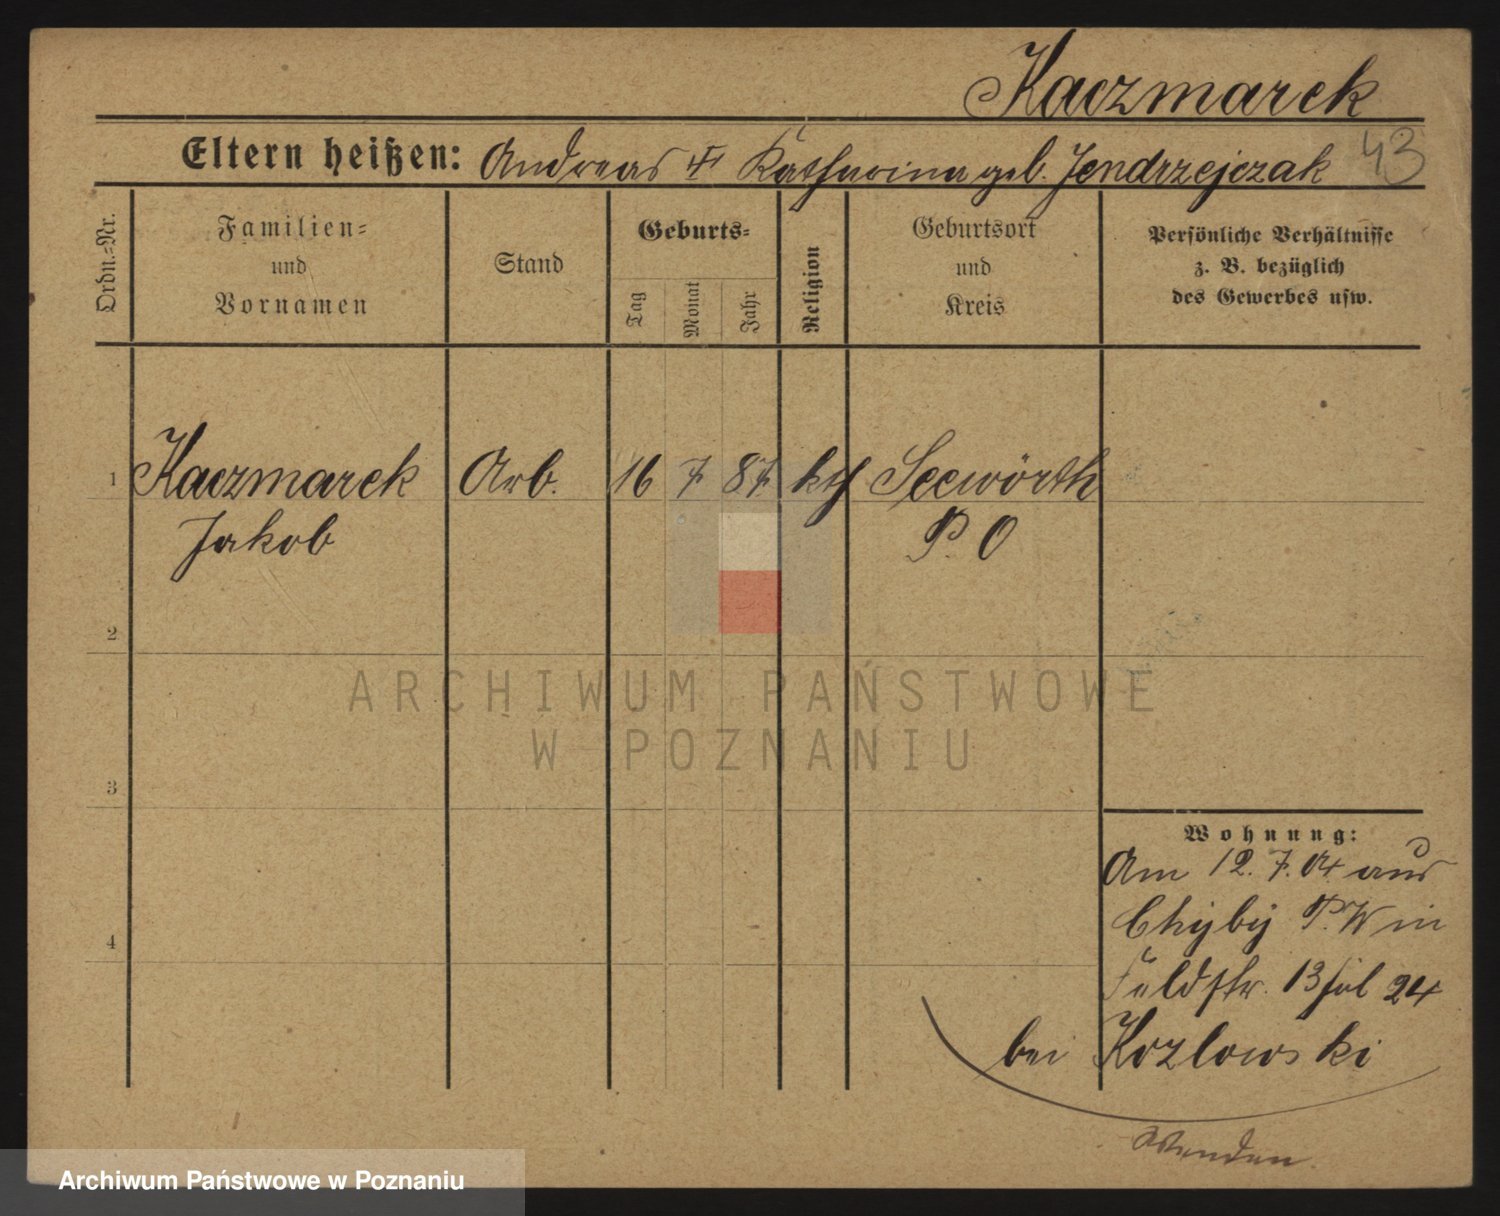 Kaczmarek
Eltern heißen: Andreas Katharina geb. Jendrzejczak 43
Ordn.-Nr.
Familien-
und
Vornamen
Stand
Geburts-
Tag
Monat
Jahr
Religion
Geburtsort
und
Kreis
Persönliche Verhältnisse
z. B. bezüglich
des Gewerbes usw.
1 Kaczmarek Arb. 16 7 87 kth Seewörth
Jakob P. O
2
3
4
ARCHIWUM PAŃSTWOWE
W POZNANIU
Wohnung:
Am 12. 7. 04 aus
Chyby P. W in
Feldstr. 13 24
bei Kozlowski
Wenden.
Archiwum Państwowe w Poznaniu